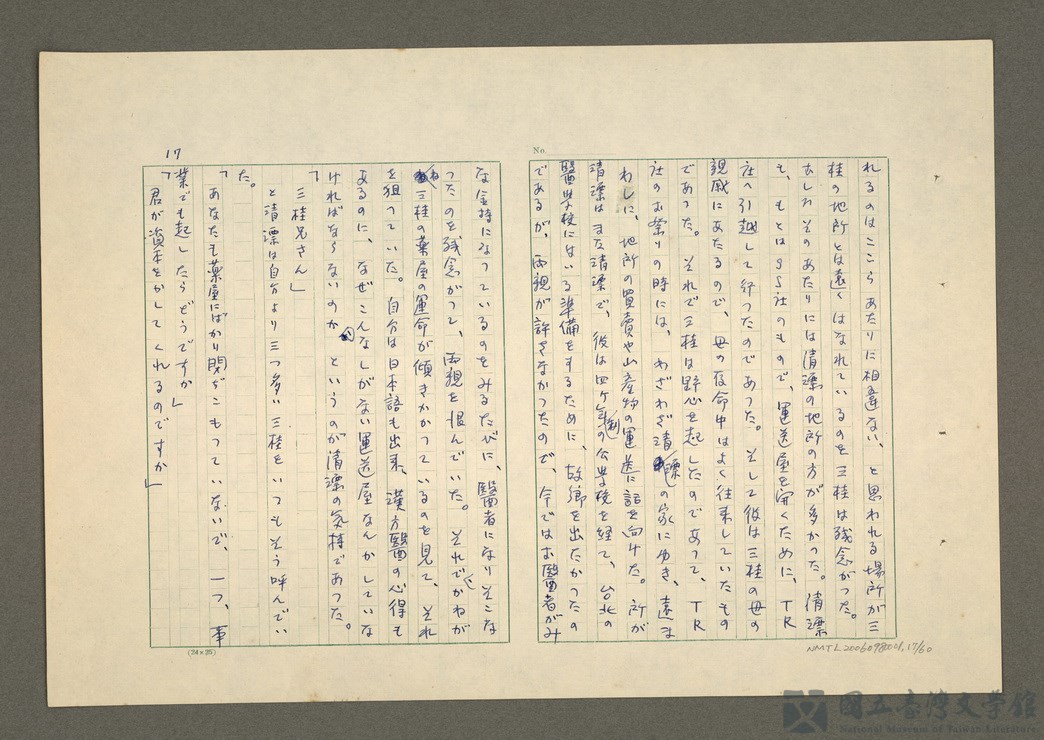 No.
れるのはここらあたりに相違ない、と思われる場所が三
桂の地所とは遠くはなれているのを三桂は残念がった。
むしろそのあたりには清漂の地所の方が多かった。清漂
も、もとはSS社のもので、運送屋を開くために、TR
社へ引越して行ったのであった。そして彼は三桂の母の
親戚にあたるので、母の存命中はよく往来していたもの
であった。それで三桂は野心を起したのであって、TR
社のお祭りの時には、わざわざ清漂の家にゆき、遠ま
わしに、地所の買賣や山産物の運送に話を向けた。所が
清漂はまた清漂で、彼は四ケ年制の公学校を経て、台北の
醫学校にはいる準備をするために、故郷を出たかったの
であるが、両親が許さなかったので、今ではお醫者がみ
17
な金持になっているのをみるたびに、醫者になりそこな
ったのを残念がって、両親を恨んでいた。それでかねが
ね三桂の薬屋の運命が傾きかかっているのを見て、それ
を狙っていた。自分は日本語も出来、漢方醫の心得も
あるのに、なぜこんなしがない運送屋なんかしていな
ければならないのか、というのが清漂の気持であった。
「三桂兄さん」
と清漂は自分より三つ多い三桂をいつもそう呼んでい
た。
「あなたも薬屋にばかり閉ぢこもっていないで、一つ、事
業でも起したらどうですか」
「君が資本をかしてくれるのですか」
(24×25)
NMTL20060980001.17/60
國立臺灣文學館
National Museum of Taiwan Literature